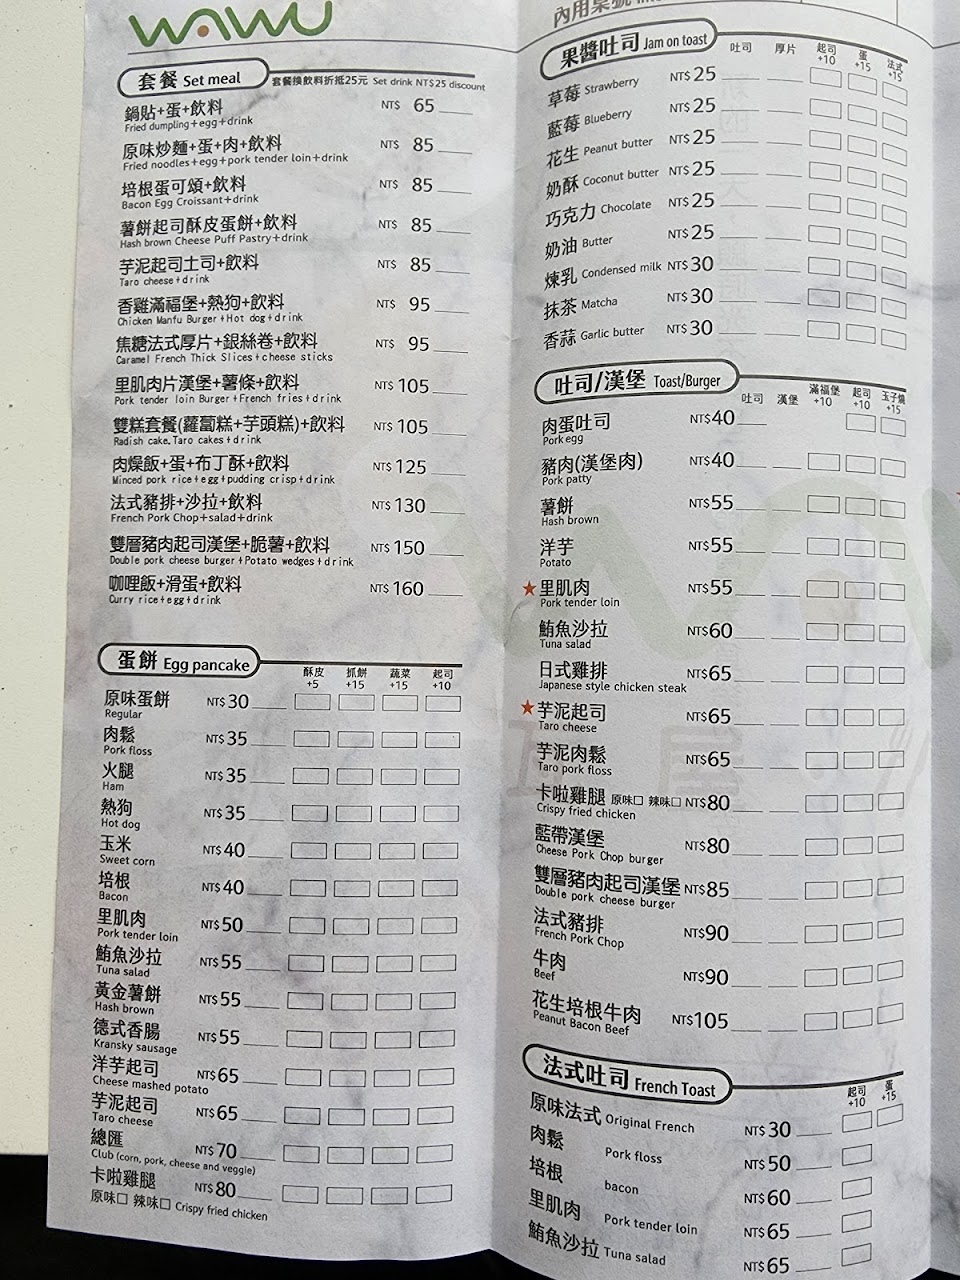 WAWU
套餐 Set meal 套餐換飲料折抵25元 Set drink NT$25 discount
鍋貼+蛋+飲料 NT$ 65
Fried dumpling+egg+drink
原味炒麵+蛋+肉+飲料 NT$ 85
Fried noodles+egg+pork tender loin+drink
培根蛋可頌+飲料 NT$ 85
Bacon Egg Croissant+drink
薯餅起司酥皮蛋餅+飲料 NT$ 85
Hash brown Cheese Puff Pastry+drink
芋泥起司土司+飲料 NT$ 85
Taro cheese+drink
香雞滿福堡+熱狗+飲料 NT$ 95
Chicken Manfu Burger+Hot dog+drink
焦糖法式厚片+銀絲卷+飲料 NT$ 95
Caramel French Thick Slices+cheese sticks
里肌肉片漢堡+薯條+飲料 NT$ 105
Pork tender loin Burger+French fries+drink
雙糕套餐(蘿蔔糕+芋頭糕)+飲料 NT$ 105
Radish cake.Taro cakes+drink
肉燥飯+蛋+布丁酥+飲料 NT$ 125
Minced pork rice+egg+pudding crisp+drink
法式豬排+沙拉+飲料 NT$ 130
French Pork Chop+salad+drink
雙層豬肉起司漢堡+脆薯+飲料 NT$ 150
Double pork cheese burger+Potato wedges+drink
咖哩飯+滑蛋+飲料 NT$ 160
Curry rice+egg+drink
蛋餅 Egg pancake 酥皮 +5 抓餅 +15 蔬菜 +15 起司 +10
原味蛋餅 NT$ 30
Regular
肉鬆 NT$ 35
Pork floss
火腿 NT$ 35
Ham
熱狗 NT$ 35
Hot dog
玉米 NT$ 40
Sweet corn
培根 NT$ 40
Bacon
里肌肉 NT$ 50
Pork tender loin
鮪魚沙拉 NT$ 55
Tuna salad
黃金薯餅 NT$ 55
Hash brown
德式香腸 NT$ 55
Kransky sausage
洋芋起司 NT$ 65
Cheese mashed potato
芋泥起司 NT$ 65
Taro cheese
總匯 NT$ 70
Club (corn, pork, cheese and veggie)
卡啦雞腿 NT$ 80
原味□ 辣味□ Crispy fried chicken
內用桌號
果醬吐司 Jam on toast 吐司 厚片 起司 +10 蛋 +15 法式 +15
草莓 Strawberry NT$ 25
藍莓 Blueberry NT$ 25
花生 Peanut butter NT$ 25
奶酥 Coconut butter NT$ 25
巧克力 Chocolate NT$ 25
奶油 Butter NT$ 25
煉乳 Condensed milk NT$ 30
抹茶 Matcha NT$ 30
香蒜 Garlic butter NT$ 30
吐司/漢堡 Toast/Burger 吐司 漢堡 滿福堡 +10 起司 +10 玉子燒 +15
肉蛋吐司 NT$ 40
Pork egg
豬肉(漢堡肉) NT$ 40
Pork patty
薯餅 NT$ 55
Hash brown
洋芋 NT$ 55
Potato
★里肌肉 NT$ 55
Pork tender loin
鮪魚沙拉 NT$ 60
Tuna salad
日式雞排 NT$ 65
Japanese style chicken steak
★芋泥起司 NT$ 65
Taro cheese
芋泥肉鬆 NT$ 65
Taro pork floss
卡啦雞腿 原味□ 辣味□ NT$ 80
Crispy fried chicken
藍帶漢堡 NT$ 80
Cheese Pork Chop burger
雙層豬肉起司漢堡 NT$ 85
Double pork cheese burger
法式豬排 NT$ 90
French Pork Chop
牛肉 NT$ 90
Beef
花生培根牛肉 NT$ 105
Peanut Bacon Beef
法式吐司 French Toast 起司 +10 蛋 +15
原味法式 Original French NT$ 30
肉鬆 Pork floss NT$ 50
培根 bacon NT$ 60
里肌肉 Pork tender loin NT$ 65
鮪魚沙拉 Tuna salad NT$ 65